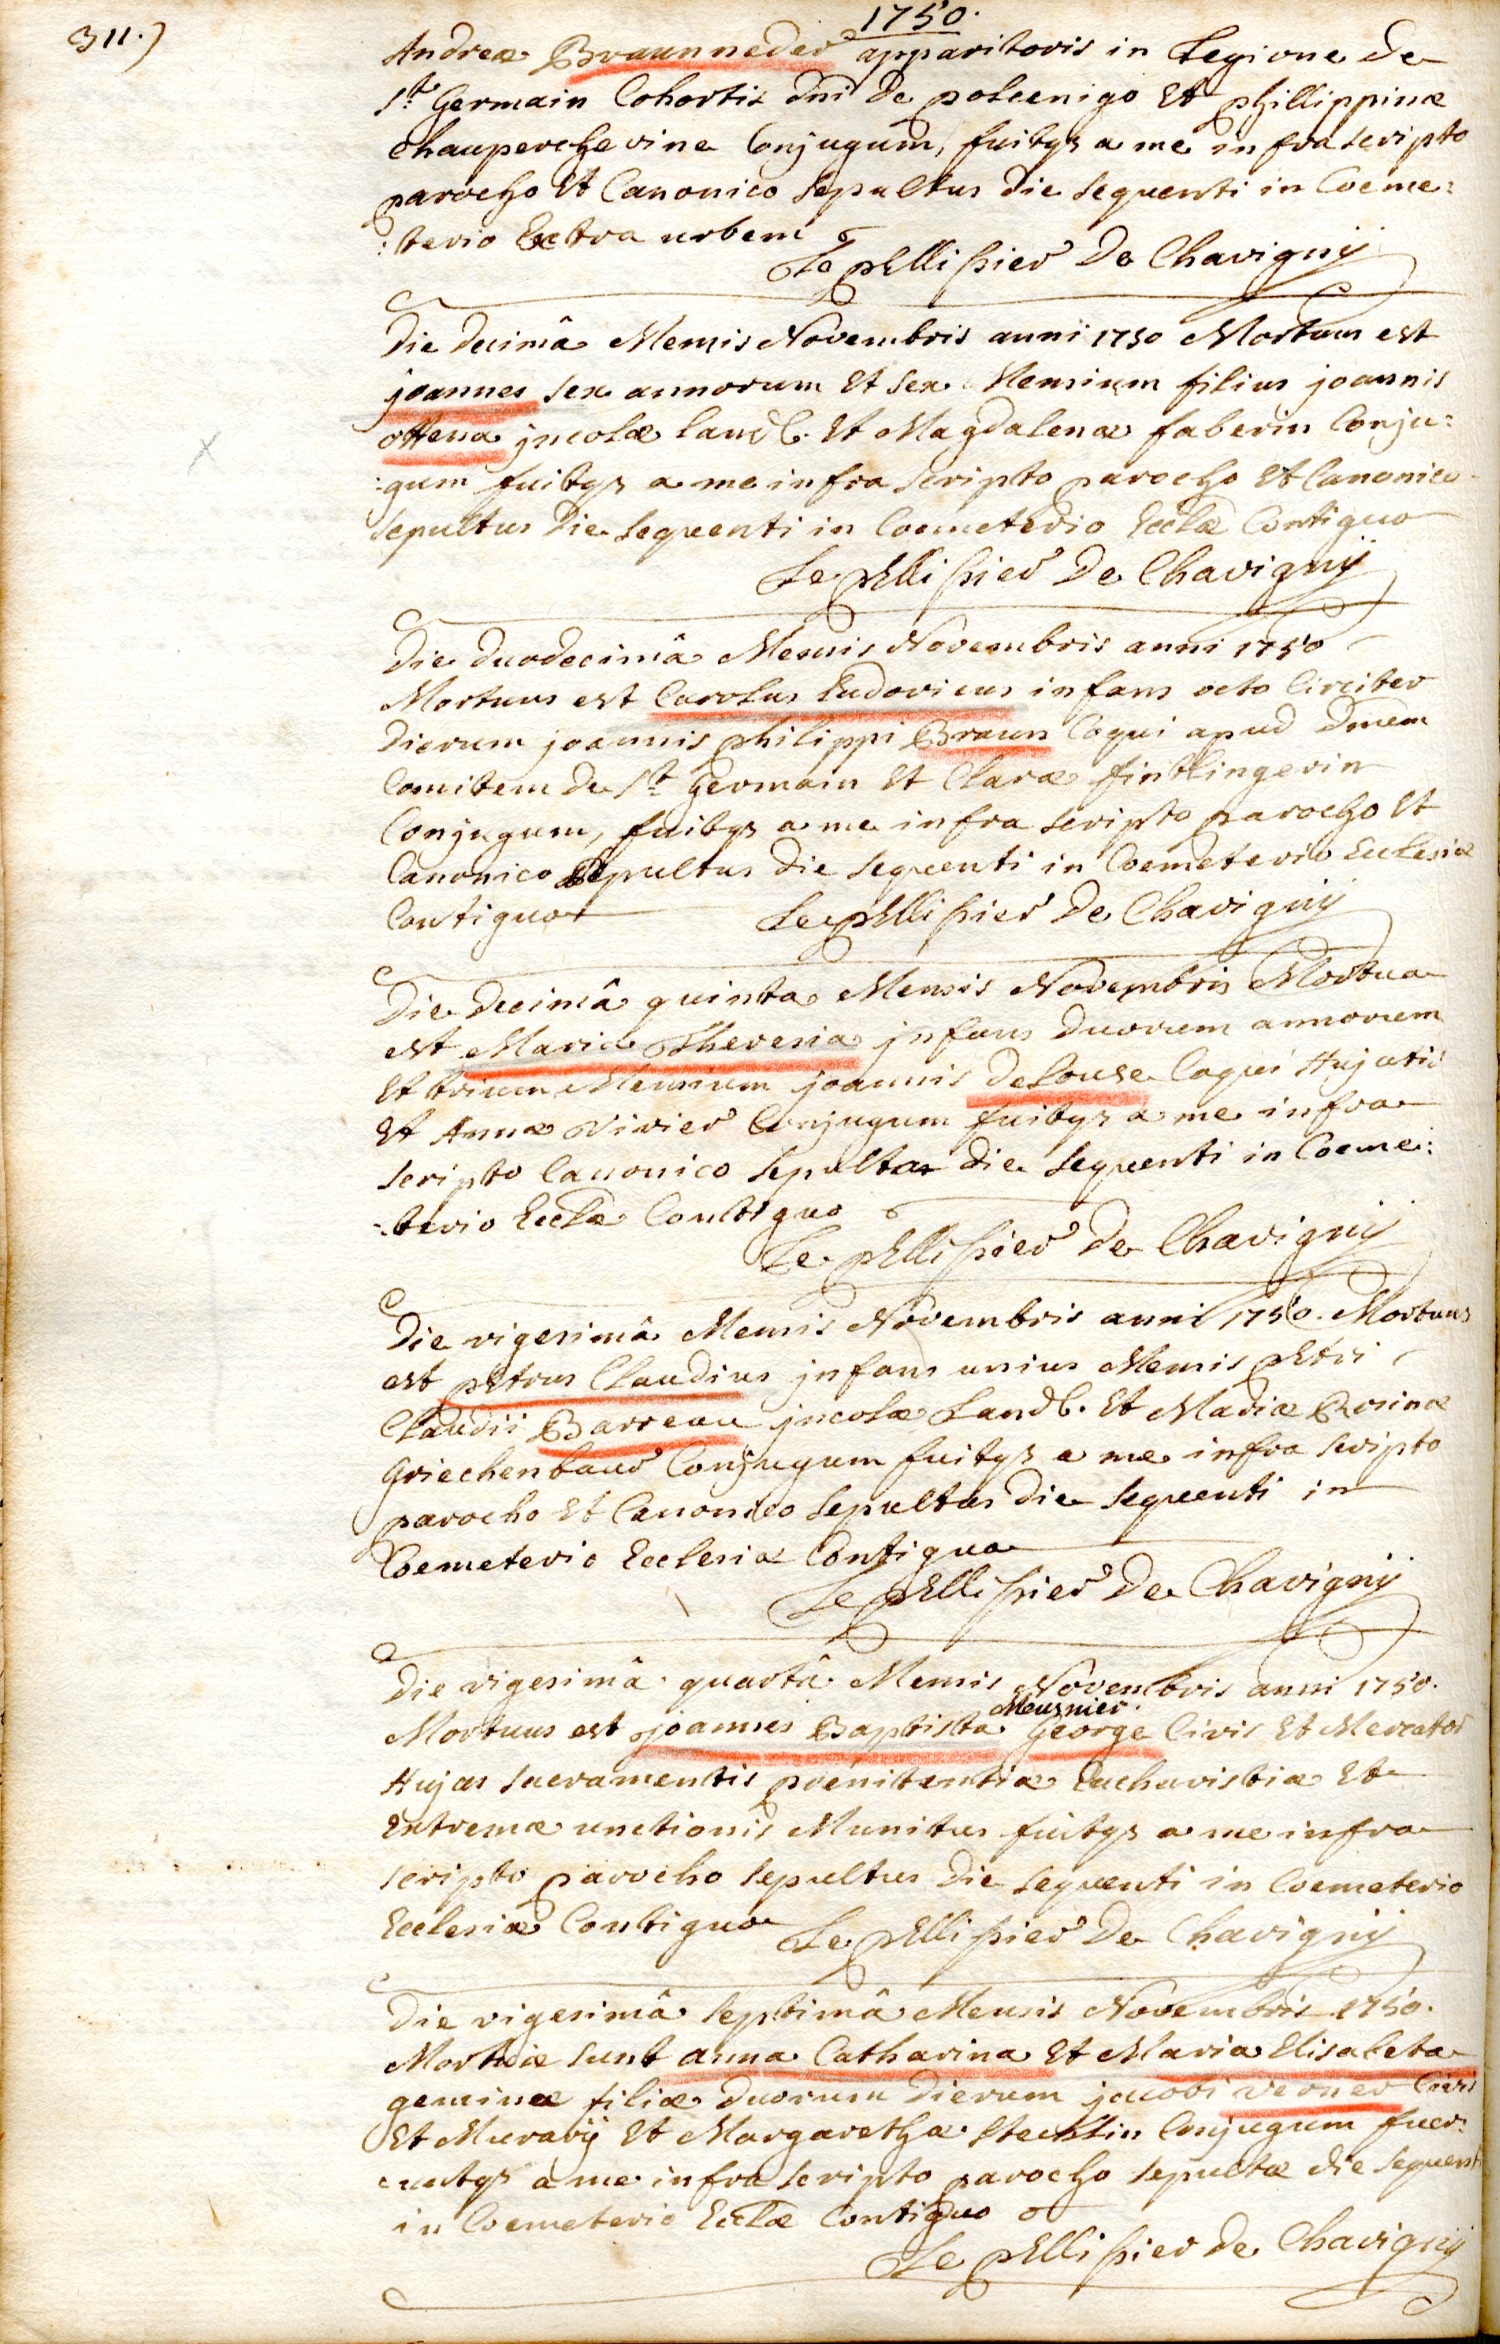 311.)
1750.
Andreæ Braunneder apparitoris in Legione de
St Germain Cohortis dni de polcenigo Et phillippinæ
chauperchevine Conjugum, fuitqz a me infra scripto
parocho Et Canonico sepultus die sequenti in Coeme:
:terio Extra urbem
Le pEllissier De Chavignÿ
Die decimâ Mensis Novembris anni 1750 Mortuus est
joannes sex annorum Et sex Mensium filius joannis
ottena jncolæ Landb. Et Magdalenæ faberin Conju:
:gum fuitqz a me infra scripto parocho Et Canonico
sepultus die sequenti in Coemeterio Ecclæ Contiguo
Le pEllissier De Chavignÿ
Die duodecimâ Mensis Novembris anni 1750
Mortuus est Carolus Ludovicus infans octo Circiter
Dierum joannis philippi Braun Coqui apud Dnem
Comitem de St Germain Et Claræ fintlingerin
Conjugum, fuitqz a me infra scripto parocho Et
Canonico sepultus die sequenti in Coemeterio Ecclesiæ
Contiguo
Le pEllissier De Chavignÿ
Die Decimâ quinta Mensis Novembris Mortua
est Maria Theresia jnfans duorum annorum
Et trium Mensium joannis Delouse Coqui Hujatis
Et Annæ Vivier Conjugum fuitqz a me infra
scripto Canonico sepulta die sequenti in Coeme:
:terio Ecclæ Contiguo
Le pEllissier De Chavignÿ
Die vigesimâ Mensis Novembris anni 1750. Mortuus
est pEtrus Claudius jnfans unius Mensis pEtri
Claudii Barreau jncolæ Landb. Et Mariæ Rosinæ
Griechenbaur Conjugum fuitqz a me infra scripto
parocho Et Canonico sepultus die sequenti in
Coemeterio Ecclesiæ Contiguo
Le pEllissier De Chavignÿ
Die vigesimâ quartâ Mensis Novembris anni 1750.
Meusnier.
Mortuus est joannes Baptista George Civis Et Mercator
Hujas sacramentis poenitentiæ Eucharistiæ Et
Extremæ unctionis Munitus fuitqz a me infra
scripto parocho sepultus die sequenti in Coemeterio
Ecclesiæ Contiguo
Le pEllissier De Chavignÿ
Die vigesimâ septimâ Mensis Novembris 1750.
Mortuæ sunt anna Catharina Et Maria Elisabeta
geminæ filiæ duorum Dierum jacobi verner Civis
Et Murarij Et Margarethæ Stecklin Conjugum fuer:
:untqz a me infra scripto parocho sepultæ die sequenti
in Coemeterio Ecclæ Contiguo
Le pEllissier De Chavignÿ